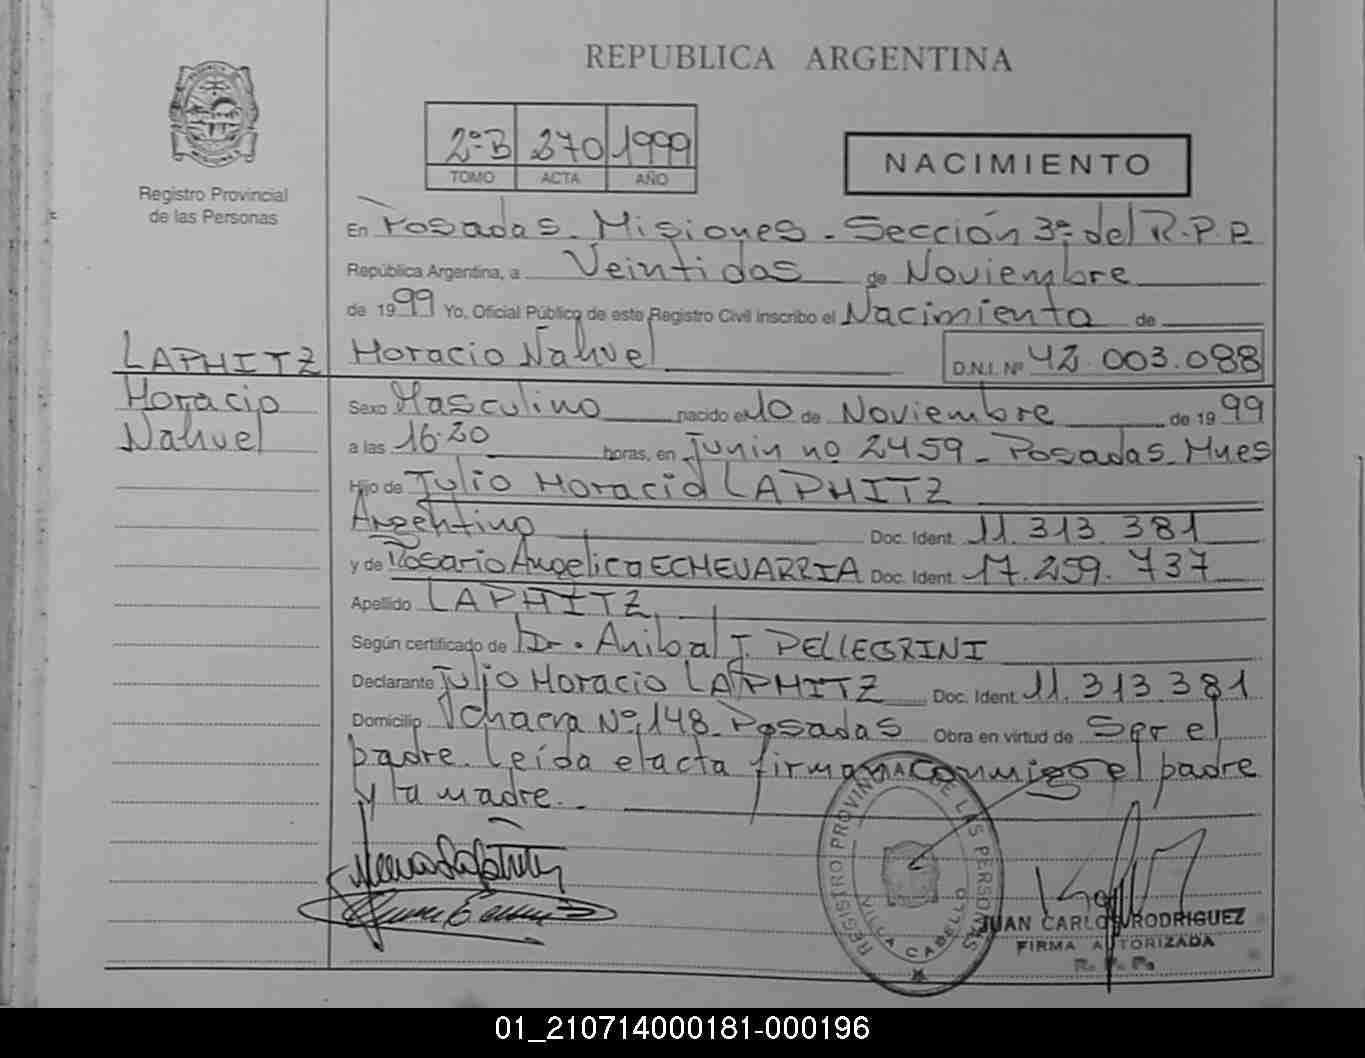 REPUBLICA ARGENTINA
2º B 270 1999
TOMO ACTA AÑO
NACIMIENTO
Registro Provincial
de las Personas
En Posadas - Misiones - Sección 3ª del R.P.P.
República Argentina, a Veintidos de Noviembre
de 1999 Yo, Oficial Público de este Registro Civil inscribo el Nacimiento de
LAPHITZ
Horacio
Nahuel
Horacio Nahuel D.N.I. Nº 42.003.088
Sexo Masculino nacido el 10 de Noviembre de 1999
a las 16.20 horas, en Junin nº 2459 - Posadas - Mnes
Hijo de Julio Horacio LAPHITZ
Argentino Doc. Ident. 11.313.381
y de Rosario Angelica ECHEVARRIA Doc. Ident. 17.259.737
Apellido LAPHITZ
Según certificado de Dr. Anibal J. PELLEGRINI
Declarante Julio Horacio LAPHITZ Doc. Ident. 11.313.381
Domicilio Chacra Nº 148 - Posadas Obra en virtud de Ser el
padre. Leída el acta firman conmigo el padre
y la madre.
REGISTRO PROVINCIAL DE LAS PERSONAS
VILLA CABELLO
JUAN CARLOS RODRIGUEZ
FIRMA AUTORIZADA
R. P. P.
01_210714000181-000196